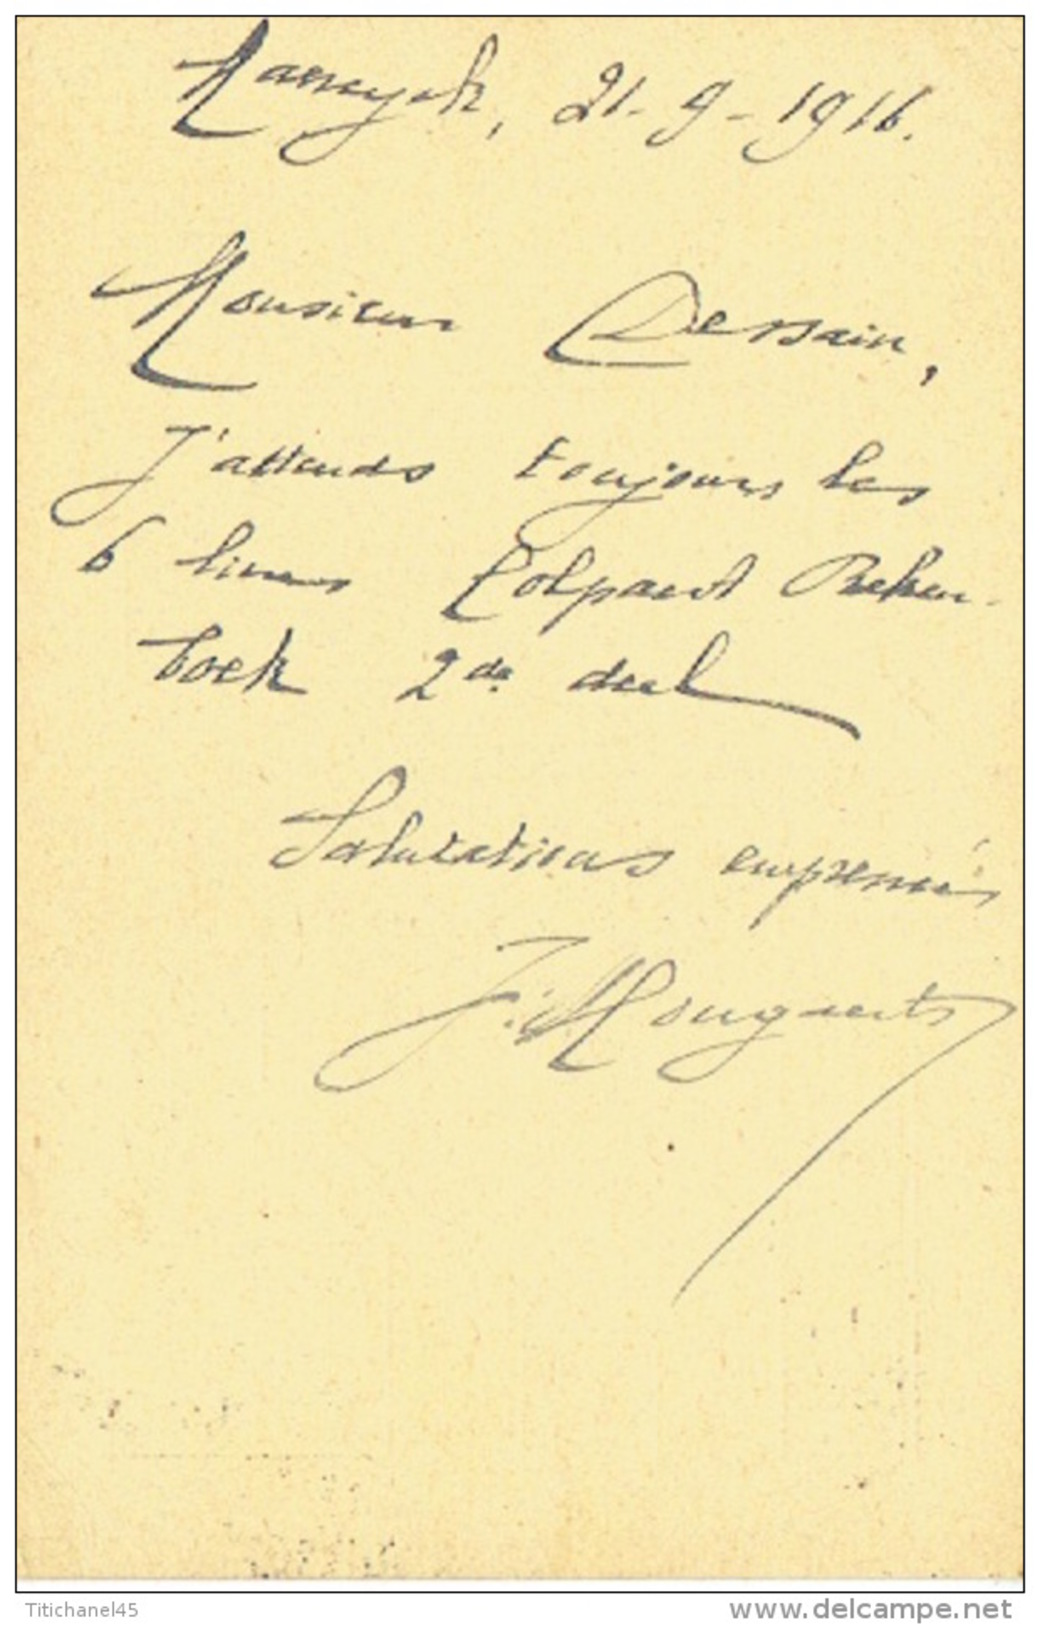 Maeseyck, 21-9-1916.
Monsieur Dessain,
J'attends toujours les
6 livres Colpaert Reken-
boek 2de deel
Salutations empressées
J. Mougaerts
Titichanel45
www.delcampe.net